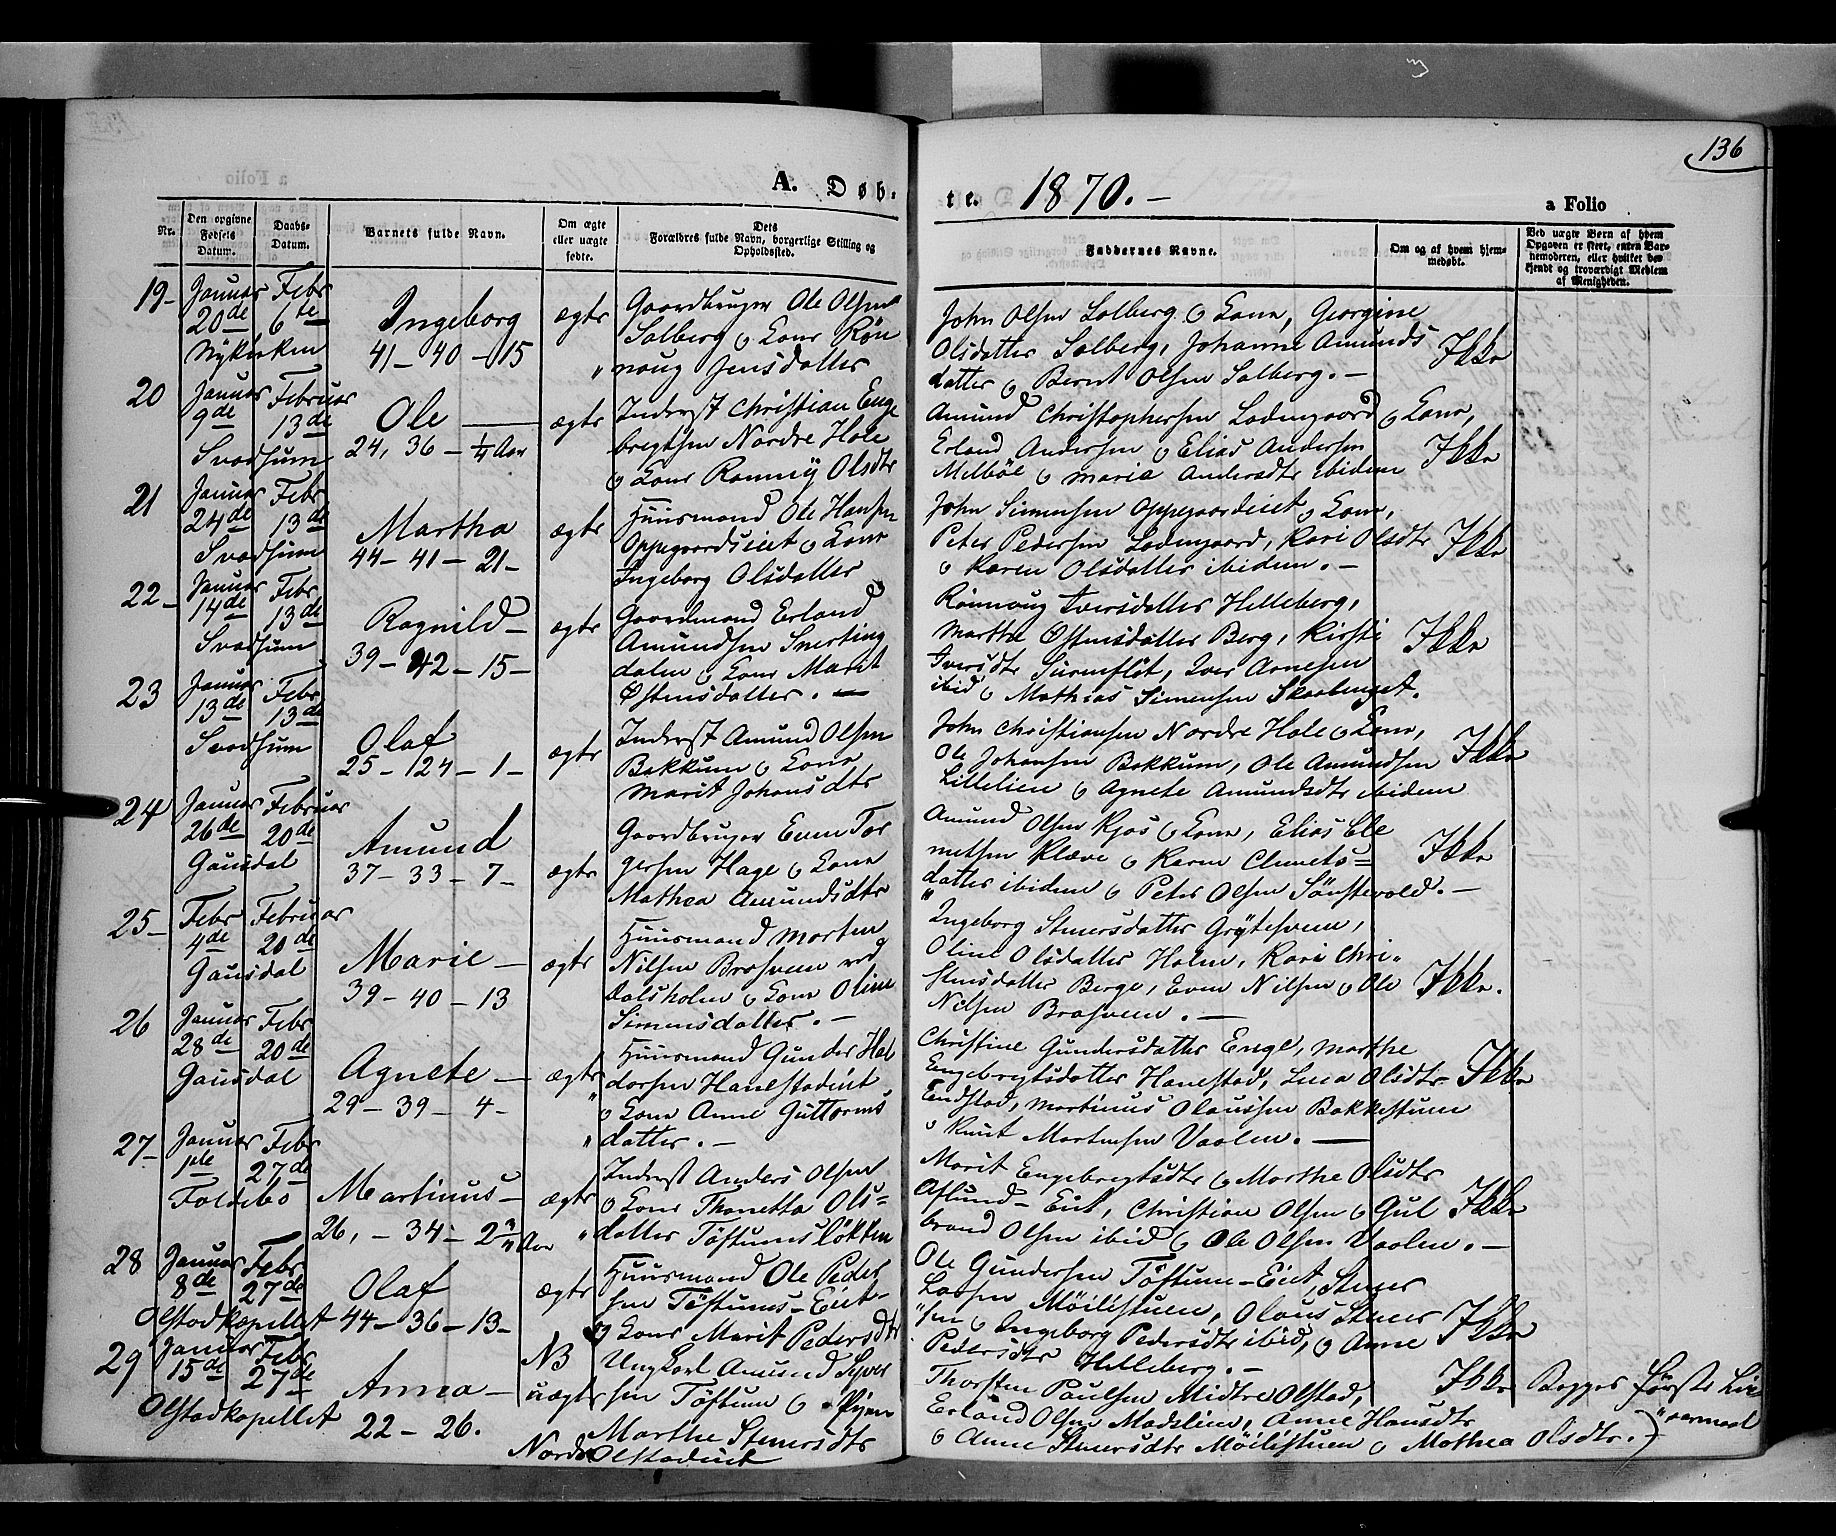 136
A. Døb-
te. 1870. –
a Folio
Nr.
Den opgivne Fødsels Datum.
Daabs-Datum.
Barnets fulde Navn.
Om ægte eller uægte fødte.
Dets Forældres fulde Navn, borgerlige Stilling og Opholdssted.
Faddernes Navne.
Om og af hvem hjemmedøbt.
Ved uægte Børn af hvem Opgaven er skeet, enten Barnemoderen, eller hvilket bekjendt og troværdigt Medlem af Menigheden.
19- Januar 20de Febr 6te
Nykirken
Ingeborg
41 – 40 – 15
ægte
Gaardbruger Ole Olsen
Solberg og Kone Røn
noug Jensdatter
John Olsen Solberg og Kone, Georgine
Olsdatter Solberg, Johanne Amunds
datter og Bernt Olsen Solberg. –
Ikke
20 Januar 9de Februar 13de
Svadsum
Ole
24, 36 – ¼ Aar
ægte
Inderst Christian Enge
bregtsen Nordre Hole
og Kone Ronnÿ Olsdtr
Amund Christophersen Ladengaard og Kone,
Erland Andersen og Elias Andersen
Melbøe og Marie Andersdtr ibidem
Ikke
21 Januar 24de Febr 13de
Svadsum
Martha
44 – 41 – 21 –
ægte
Huusmand Ole Hansen
Oppegaardseiet og Kone
Ingeborg Olsdatter
John Simensen Oppegaardeiet og Kone,
Peter Pedersen Ladengaard, Kari Olsdtr
og Karen Olsdatter ibidem. –
Ikke
22 – Januar 14de Febr 13de
Svadsum
Ragnild –
39 – 42 – 15 –
ægte
Gaardmand Erland
Amundsen Snerting
dalen og Kone Marit
Østensdatter. –
Rønnoug Iversdatter Helleberg,
Marthe Østensdatter Berg, Kirsti
Iversdtr , Iver Arnesen
ibid og Mathias Simensen Skaalenget.
Ikke
23 Januar 13de Febr 13de
Svadsum
Olaf
25 – 124 – 1 –
ægte
Inderst Amund Olsen
Bakkum og Kone
Marit Johansdtr
John Christiansen Nordre Hole og Kone,
Ole Johansen Bakkum, Ole Amundsen
Lillelien og Agnete Amundsdtr ibidem
Ikke
24 Januar 26de Februar 20de
Gausdal
Amund
37 – 33 – 7 –
ægte
Gaardbruger Even Tor
gersen Hage og Kone
Mathea Amundsdtr
Amund Olsen Kjos og Kone, Elias Cle
metsen Kleve og Karen Clemets=
datter ibidem og Peter Olsen Sønstevold. –
Ikke
25 – Febr 4de Februar 20de
Gausdal
Marie –
39 – 40 – 13
ægte
Huusmand Morten
Nilsen Braaveen ved
Dalsholen og Kone Oline
Simensdatter. –
Ingeborg Steensdatter Grÿtesveen,
Oline Olsdatter Holen, Kari Chri-
stensdatter Berge, Even Nilsen og Ole
Nilsen Braaveen. –
Ikke.
26 Januar 28de Febr 20de
Gausdal
Agnete –
29 – 39 – 4 –
ægte
Huusmand Gunder Hal
dorsen Hanestadeiet
og Kone Anne Guttorms
datter. –
Christine Gundersdatter Enge, Marthe
Engebregtsdatter Hanestad, Lina Olsdtr
Endstad, Martinus Olaussen Bakkestuen
og Knut Mortensen Vaalen. –
Ikke
27 – Januar 1ste Febr 27de
Follebo
Martinus –
26, – 34 – 2 Aar
ægte
Inderst Anders Olsen
og Kone Thonetta Ols=
datter Töftumsløkken
Marit Engebregtsdtr og Marthe Olsdtr
Aslund-Eiet, Christian Olsen og Gul
brand Olsen ibid og Ole Olsen Vaalen. –
Ikke
28 Januar 8de Febr 27de
Olstadkapellet
Olaf
44 – 36 – 13 –
ægte
Huusmand Ole Peder
sen Töftums-Eiet-
og Kone Marit Pedersdtr
Ole Gundersen Töftum-Eiet, Stener
Larsen Möilistuen, Olaus Stener
sen og Ingeborg Pedersdtr ibid, og Anne
Pedersdtr Helleberg. –
Ikke
29 Januar 15de Febr 27de
Olstadkapellet
Anna –
22 – 26.
NB
uægte
Ungkarl Amund Syver
sen Töftum og Pigen
Marthe Stenersdtr
Nordre Olstadeiet
Thorsten Paulsen Midtre Olstad,
Erland Olsen Madslien, Anne Hansdtr
og Anne Stenersdtr Möilistuen og Mathea Olsdtr. –)
Ikke
Begges første Lei
ermaal